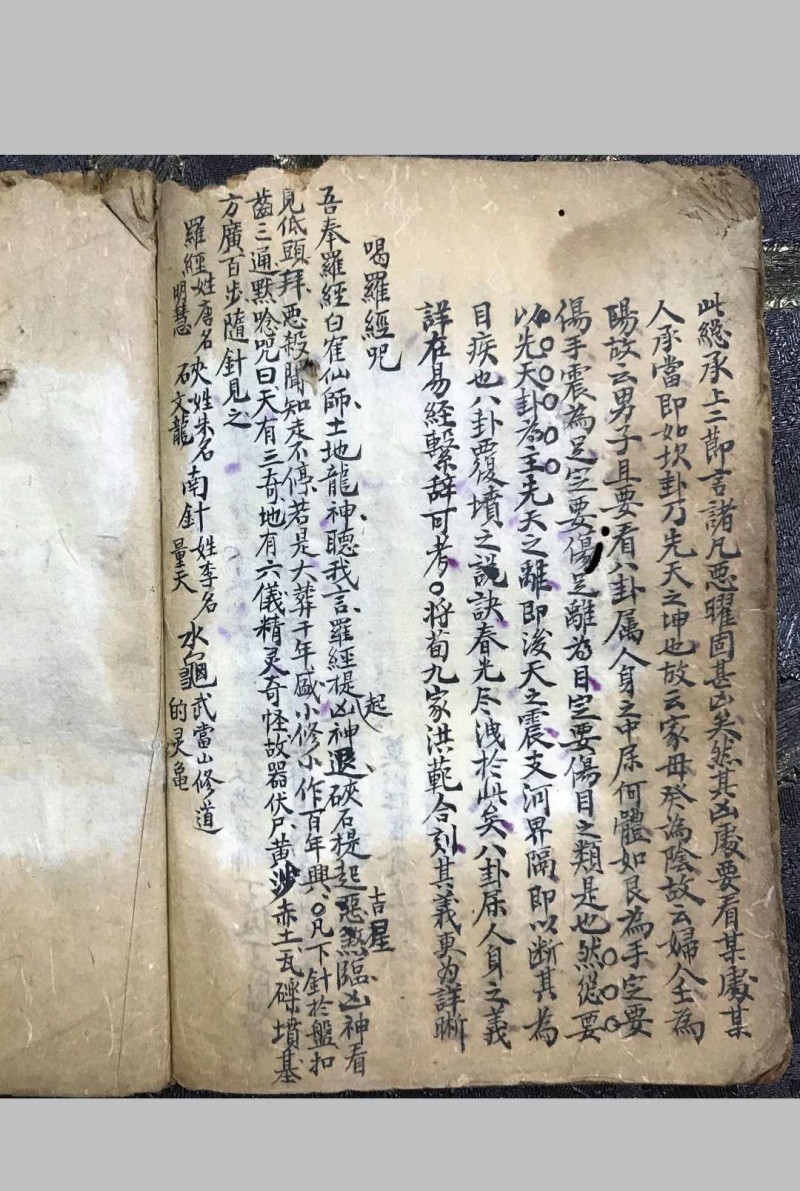 此總承上二節言諸凡惡曜固甚凶矣然其凶處要看某處某
人承當即如坎卦乃先天之坤也故云家母癸為陰故云婦人壬為
陽故云男子且要看八卦属人身之中屬何體如艮為手定要
傷手震為足定要傷足離為目定要傷目之類是也然總要
以先天卦為主先天之離即後天之震支河界隔即以斷其為
目疾也八卦覆墳之說訣春光尽洩於此矣八卦屬人身之義
詳在易經繫辞可考○将荀九家洪範合刻其義更为詳晰
喝羅經咒
吾奉羅經白雀仙師土地龍神聽我言羅經提起凶神退硤石提起惡煞臨吉星凶神看
見低頭拜惡殺聞知走不停若是大葬千年盛小修小作百年興○凡下針於盤扣
齒三通默唸咒曰天有三奇地有六儀精灵奇怪故器伏尸黄沙赤土瓦礫墳基
方廣百步隨針見之
羅經姓唐名明慧 硤姓朱名石文龍 南針姓李名量天 水龜武當山修道的灵亀